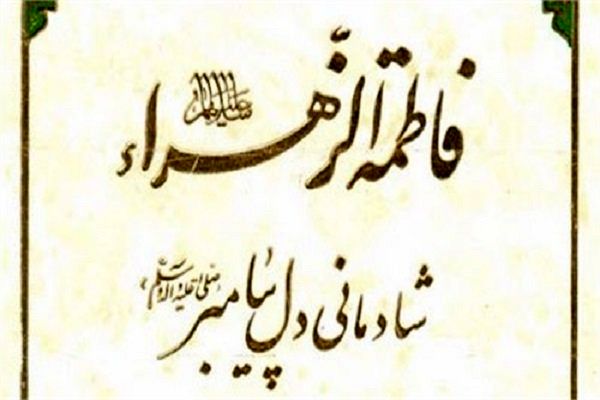 فاطمة الزّهراء سلام الله علیها
شادمانی دل پیامبر صلی الله علیه و آله و سلم